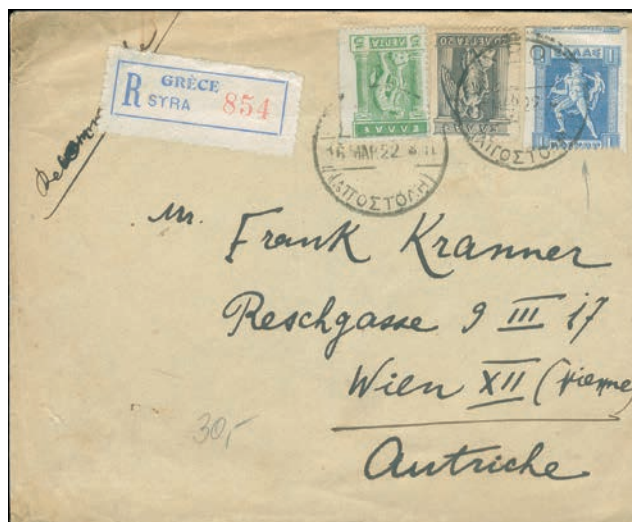 GRÈCE
R SYRA 854
5 ΛΕΠΤΑ 5
ΕΛΛΑΣ
ΛΕΠΤΑ 20
1 ΕΛΛΑΣ
1 1
16 MAP 22
ΑΠΟΣΤΟΛΗ
Mr. Frank Kranner
Reschgasse 9 III 17
Wien XII (Vienne)
Autriche
30,-